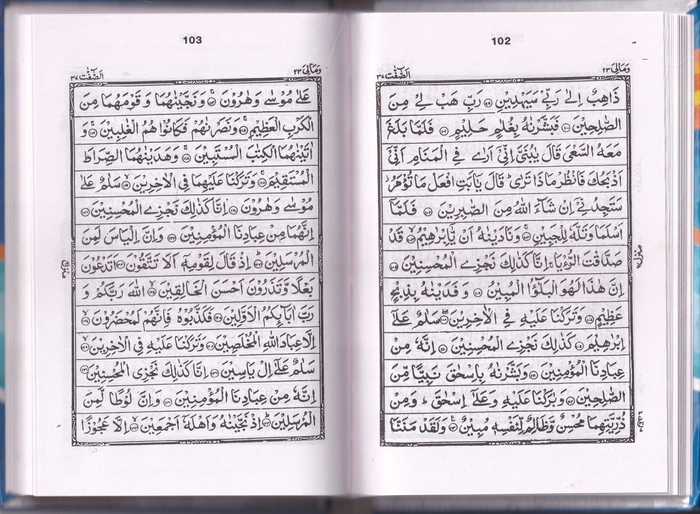 102
وَمَالِیَ ٢٣
اَلصّٰٓفّٰت ٣٧
ذَاهِبٌ اِلٰی رَبِّیْ سَیَهْدِیْنِ ۝ رَبِّ هَبْ لِیْ مِنَ
الصّٰلِحِیْنَ ۝ فَبَشَّرْنٰهُ بِغُلٰمٍ حَلِیْمٍ ۝ فَلَمَّا بَلَغَ
مَعَهُ السَّعْیَ قَالَ یٰبُنَیَّ اِنِّیْۤ اَرٰی فِی الْمَنَامِ اَنِّیْۤ
اَذْبَحُكَ فَانْظُرْ مَاذَا تَرٰی ؕ قَالَ یٰۤاَبَتِ افْعَلْ مَا تُؤْمَرُ ؗ
سَتَجِدُنِیْۤ اِنْ شَآءَ اللّٰهُ مِنَ الصّٰبِرِیْنَ ۝ فَلَمَّاۤ
اَسْلَمَا وَتَلَّهٗ لِلْجَبِیْنِ ۝ وَنَادَیْنٰهُ اَنْ یّٰۤاِبْرٰهِیْمُ ۝ قَدْ
صَدَّقْتَ الرُّءْیَا ۚ اِنَّا كَذٰلِكَ نَجْزِی الْمُحْسِنِیْنَ ۝
اِنَّ هٰذَا لَهُوَ الْبَلٰٓؤُا الْمُبِیْنُ ۝ وَفَدَیْنٰهُ بِذِبْحٍ
عَظِیْمٍ ۝ وَتَرَكْنَا عَلَیْهِ فِی الْاٰخِرِیْنَ ۝ سَلٰمٌ عَلٰۤی
اِبْرٰهِیْمَ ۝ كَذٰلِكَ نَجْزِی الْمُحْسِنِیْنَ ۝ اِنَّهٗ مِنْ
عِبَادِنَا الْمُؤْمِنِیْنَ ۝ وَبَشَّرْنٰهُ بِاِسْحٰقَ نَبِیًّا مِّنَ
الصّٰلِحِیْنَ ۝ وَبٰرَكْنَا عَلَیْهِ وَعَلٰۤی اِسْحٰقَ ؕ وَمِنْ
ذُرِّیَّتِهِمَا مُحْسِنٌ وَّظَالِمٌ لِّنَفْسِهٖ مُبِیْنٌ ۝ وَلَقَدْ مَنَنَّا
103
وَمَالِیَ ٢٣
اَلصّٰٓفّٰت ٣٧
عَلٰی مُوْسٰی وَهٰرُوْنَ ۝ وَنَجَّیْنٰهُمَا وَقَوْمَهُمَا مِنَ
الْكَرْبِ الْعَظِیْمِ ۝ وَنَصَرْنٰهُمْ فَكَانُوْا هُمُ الْغٰلِبِیْنَ ۝ وَ
اٰتَیْنٰهُمَا الْكِتٰبَ الْمُسْتَبِیْنَ ۝ وَهَدَیْنٰهُمَا الصِّرَاطَ
الْمُسْتَقِیْمَ ۝ وَتَرَكْنَا عَلَیْهِمَا فِی الْاٰخِرِیْنَ ۝ سَلٰمٌ عَلٰی
مُوْسٰی وَهٰرُوْنَ ۝ اِنَّا كَذٰلِكَ نَجْزِی الْمُحْسِنِیْنَ ۝
اِنَّهُمَا مِنْ عِبَادِنَا الْمُؤْمِنِیْنَ ۝ وَاِنَّ اِلْیَاسَ لَمِنَ
الْمُرْسَلِیْنَ ۝ اِذْ قَالَ لِقَوْمِهٖۤ اَلَا تَتَّقُوْنَ ۝ اَتَدْعُوْنَ
بَعْلًا وَّتَذَرُوْنَ اَحْسَنَ الْخَالِقِیْنَ ۝ اللّٰهَ رَبَّكُمْ وَ
رَبَّ اٰبَآئِكُمُ الْاَوَّلِیْنَ ۝ فَكَذَّبُوْهُ فَاِنَّهُمْ لَمُحْضَرُوْنَ ۝
اِلَّا عِبَادَ اللّٰهِ الْمُخْلَصِیْنَ ۝ وَتَرَكْنَا عَلَیْهِ فِی الْاٰخِرِیْنَ ۝
سَلٰمٌ عَلٰۤی اِلْ یَاسِیْنَ ۝ اِنَّا كَذٰلِكَ نَجْزِی الْمُحْسِنِیْنَ ۝
اِنَّهٗ مِنْ عِبَادِنَا الْمُؤْمِنِیْنَ ۝ وَاِنَّ لُوْطًا لَّمِنَ
الْمُرْسَلِیْنَ ۝ اِذْ نَجَّیْنٰهُ وَاَهْلَهٗۤ اَجْمَعِیْنَ ۝ اِلَّا عَجُوْزًا